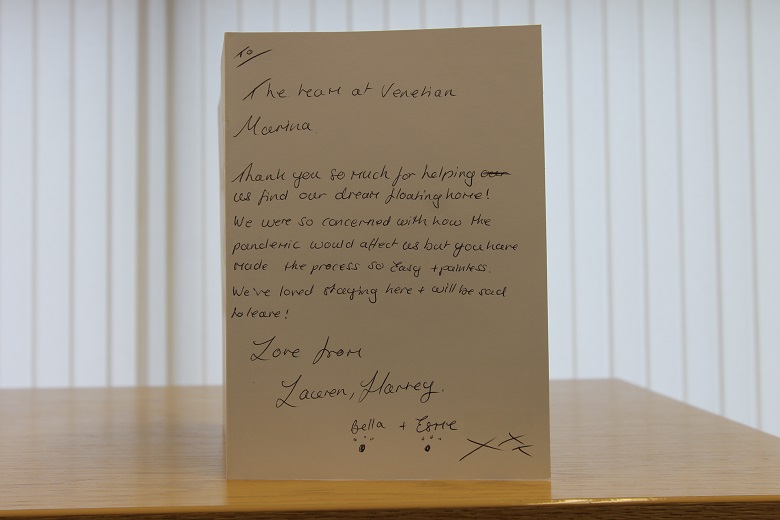 To
The team at Venetian
Marina
Thank you so much for helping our
us find our dream floating home!
We were so concerned with how the
pandemic would affect us but you have
made the process so easy + painless.
We've loved staying here + will be sad
to leave!
Love from
Lauren, Harvey.
Bella + Esme
xxx